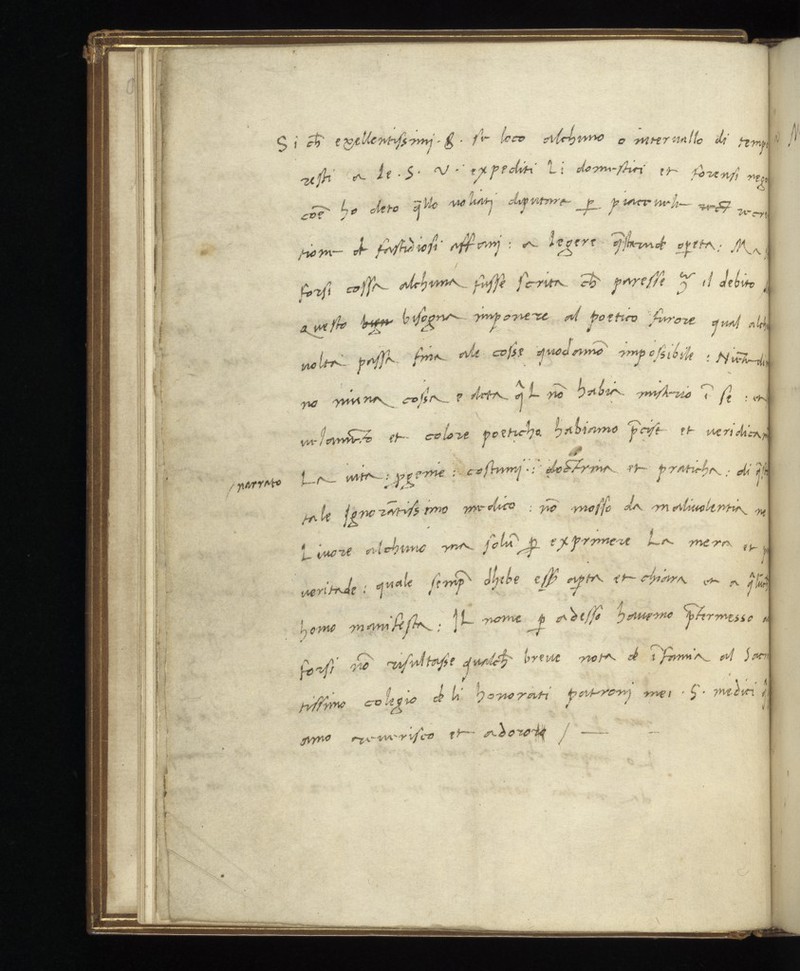 Si ch̅ exellentissimj · S · se loco alchuno o intervallo di temp
resti a le · S · V · expediti li domestici et forensi nego
coe̅ ho deto q̅llo voliatj diputare p̱ piacevele recr
tione de fastidiosi affanj : a legere operta : Ma
forsi cossa alchuna fusse scrita ch̅ paresse il debito
questo bisogna imponere al poetico furore qual alch
volta passa fina ale cosse quodamo̅ impossibile :
no niuna cossa e deta no̅ habia misterio i̅ se : et
velame̅to et colore poeticho habiamo et veridica
/ narrato La vita : pgenie : costumj : doctrina et praticha : di
tale Ignora̅tissimo medico : no̅ mosso da malivolentia ne
Livore alchuno ma solu̅ p̱ exprimere La mera et
veritade : quale semp̱ dhebe ess̅ apta et chiara et a
homo manifesta : IL nome p̱ adesso havemo p̅termesso
forsi no̅ risultasse qualch̅ breve nota de i̅famia al Sac
tissimo colegio de li honorati patronj mei · S · medici
amo reverisco et adoro /